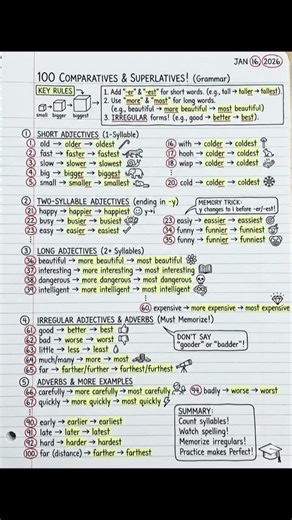 JAN 16, 2026
100 COMPARATIVES & SUPERLATIVES! (Grammar)
KEY RULES
small bigger biggest
1. Add "-er" & "-est" for short words. (e.g., tall → taller → tallest)
2. Use "more" & "most" for long words.
(e.g., beautiful → more beautiful → most beautiful)
3. IRREGULAR forms! (e.g., good → better → best).
1 SHORT ADJECTIVES (1-Syllable)
1. old → older → oldest
2. fast → faster → fastest
3. slow → slower → slowest
4. big → bigger → biggest
5. small → smaller → smallest
16 with → colder → coldest
17. hook → colder → coldest
18. wisp → colder → coldest
20. cold → colder → coldest
2 TWO-SYLLABLE ADJECTIVES (ending in -y)
21 happy → happier → happiest
22. busy → busier → busiest
23. easy → easier → easiest
MEMORY TRICK:
y changes to i before -er/-est!
23. easily → eassier → easiest
34. funny → funnier → funniest
35. funny → funnier → funniest
3 LONG ADJECTIVES (2+ Syllables)
36. beautiful → more beautiful → most beautiful
37. interesting → more interesting → most interesting
38 dangerous → more dangerous → most dangerous
39. intelligent → more intelligent → most intelligent
60. expensive → more expensive → most expensive
4 IRREGULAR ADJECTIVES & ADVERBS (Must Memorize!)
61. good → better → best
62. bad → worse → worst
63. little → less → least
64. much/many → more → most
65. far → farther/further → farthest/furthest
DON'T SAY
"gooder" or "badder"!
5 ADVERBS & MORE EXAMPLES
66. carefully → more carefully → most carefully
67. quickly → more quickly → most quickly
94. badly → worse → worst
90. early → earlier → earliest
91. late → later → latest
92. hard → harder → hardest
100. far (distance) → farther → farthest
SUMMARY:
Count syllables!
Watch spelling!
Memorize irregulars!
Practice makes Perfect!